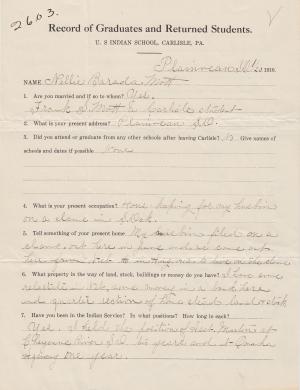 2603.
Record of Graduates and Returned Students.
U. S INDIAN SCHOOL, CARLISLE, PA.
1910.
NAME Nellie Barada Mott
1. Are you married and if so to whom? Yes.
Frank S. Mott Ex Carlisle student
2. What is your present address?
3. Did you attend or graduate from any other schools after leaving Carlisle? No Give names
of schools and dates if possible None
4. What is your present occupation? for my
on a claim in S. Dak.
5. Tell something of your present home My filed on a
claim out here in June and we came out
here from in to live on the claim
6. What property in the way of land, stock, buildings or money do you have? I have some
in Neb. some money in a bank here
and quarter section of land & stock
7. Have you been in the Indian Service? In what positions? How long in each?
Yes. I held the position of Asst. Matron at
Cheyenne River S.D. six years and at Omaha
Agency one year.